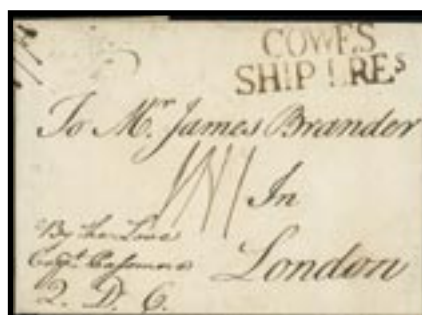 COWES
SHIP LRES
To Mr. James Brander
In
London
By the
Capt.
Q. D. C.